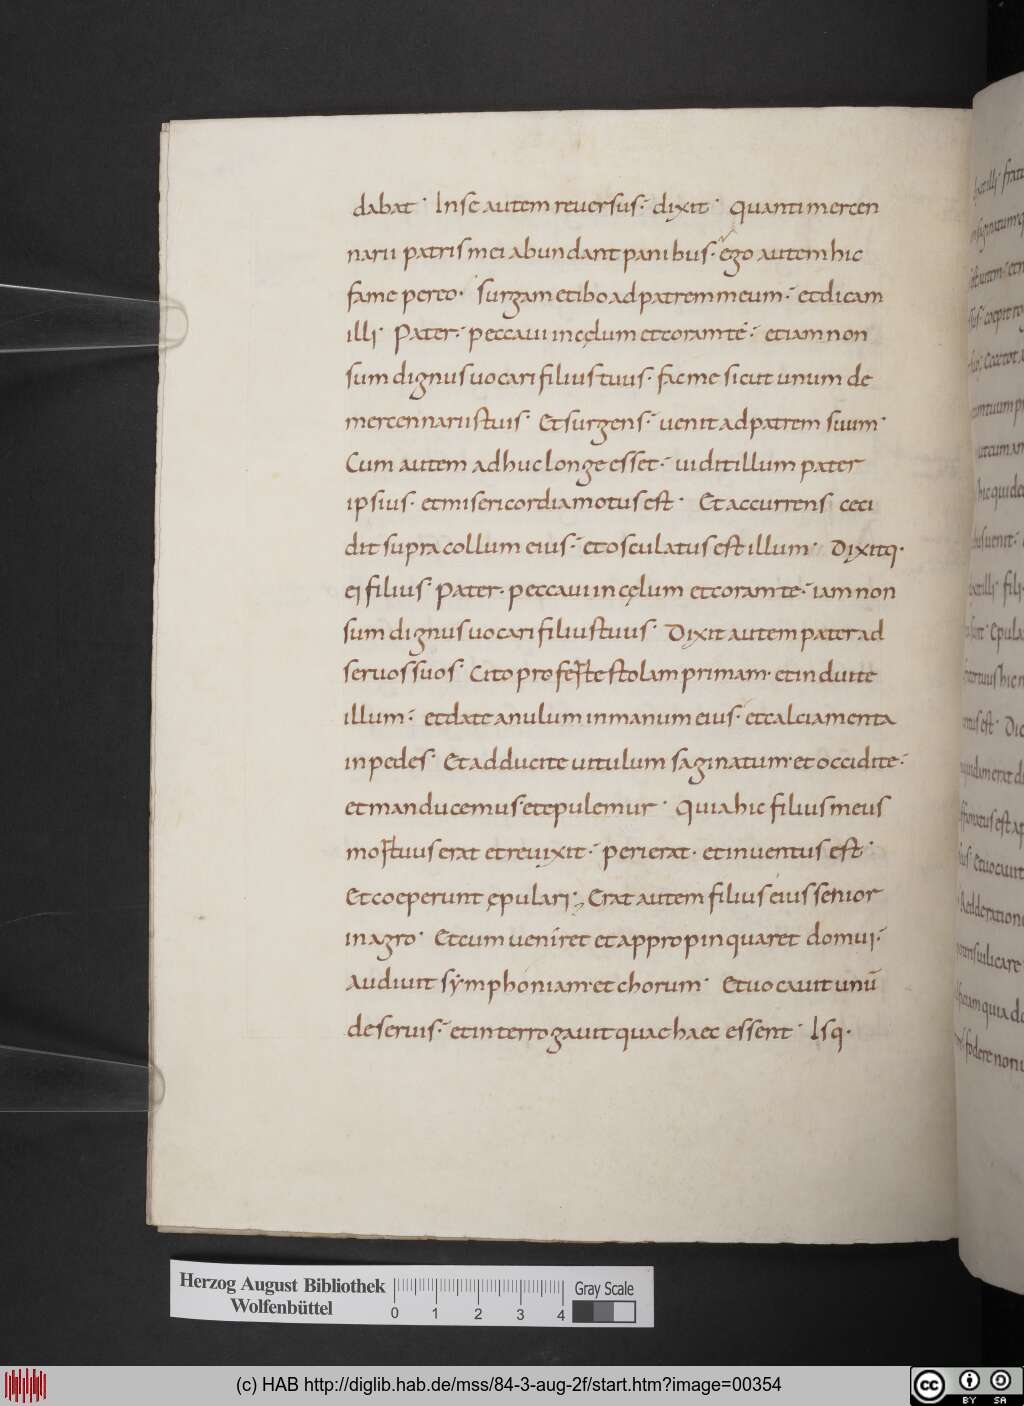 dabat · Inse autem reuersus· dixit · Quanti mercen
narii patris mei abundant panibus· ego autem hic
fame pereo· Surgam et ibo ad patrem meum· et dicam
illi· Pater· peccaui in cęlum et coram te· et iam non
sum dignus uocari filius tuus· fac me sicut unum de
mercennariis tuis· Et surgens· uenit ad patrem suum·
Cum autem adhuc longe esset· uidit illum pater
ipsius· et misericordia motus est · Et accurrens ceci
dit supra collum eius· et osculatus est illum · Dixitq·
ei filius· Pater· peccaui in cęlum et coram te· iam non
sum dignus uocari filius tuus· Dixit autem pater ad
seruos suos· Cito proferte stolam primam· et induite
illum· et date anulum in manum eius· et calciamenta
in pedes· Et adducite uitulum saginatum· et occidite·
et manducemus et epulemur · Quia hic filius meus
mortuus erat et reuixit· perierat· et inuentus est·
Et coeperunt ępulari· Erat autem filius eius senior
in agro· Et cum ueniret et appropinquaret domui·
Audiuit symphoniam· et chorum· Et uocauit unū
de seruis· et interrogauit quae haec essent · Isq·
Herzog August Bibliothek
Wolfenbüttel
0 1 2 3 4
Gray Scale
(c) HAB http://diglib.hab.de/mss/84-3-aug-2f/start.htm?image=00354
cc BY SA